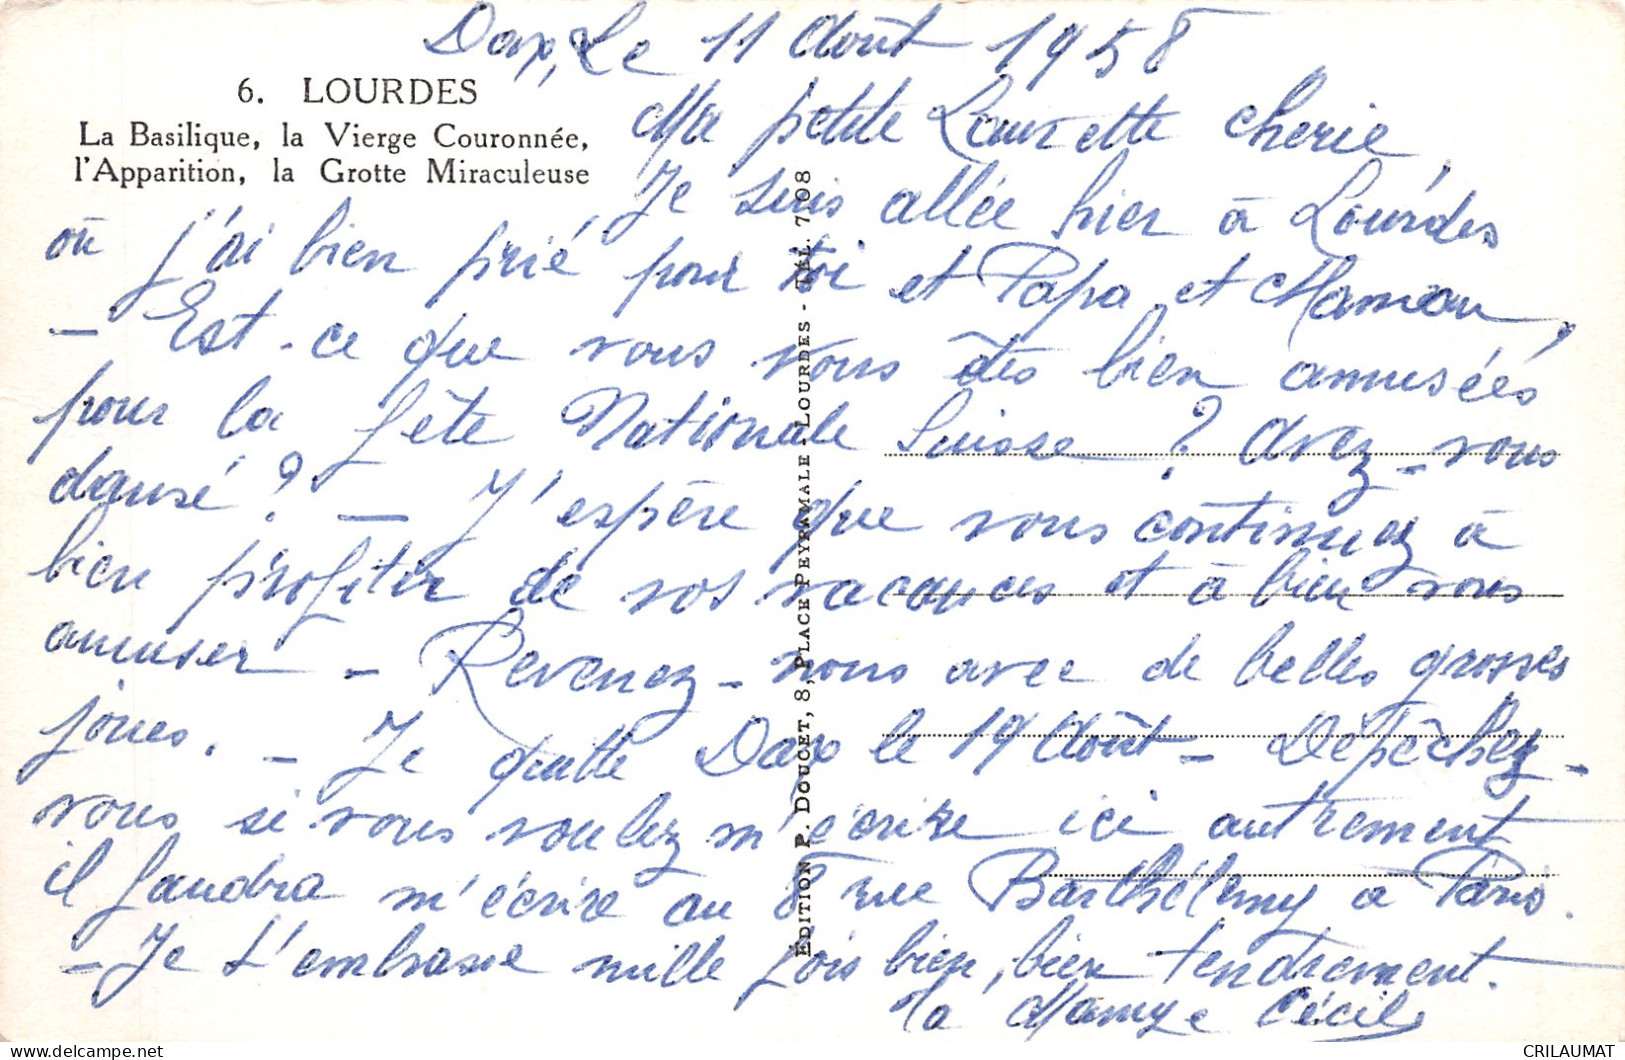 Dax, Le 11 Août 1958
6. LOURDES
La Basilique, la Vierge Couronnée,
l'Apparition, la Grotte Miraculeuse
Ma petite Laurette cherie,
Je suis allée hier à Lourdes
où j'ai bien prié pour toi et Papa et Maman,
— Est-ce que vous vous êtes bien amusées
pour la fête Nationale Suisse ? Avez-vous
dansé ? — J'espère que vous continuez à
bien profiter de vos vacances et à bien vous
amuser - Revenez-nous avec de belles grosses
joues. - Je quitte Dax le 19 Août - Dépêchez-
vous si vous voulez m'écrire ici autrement
il faudra m'écrire au 8 rue Barthélemy à Paris.
- Je t'embrasse mille fois bien, bien tendrement.
Ta Mamy Cécile
ÉDITION P. DOUCET, 8, PLACE PEYRAMALE LOURDES - TÉL. 7-08
CRILAUMAT